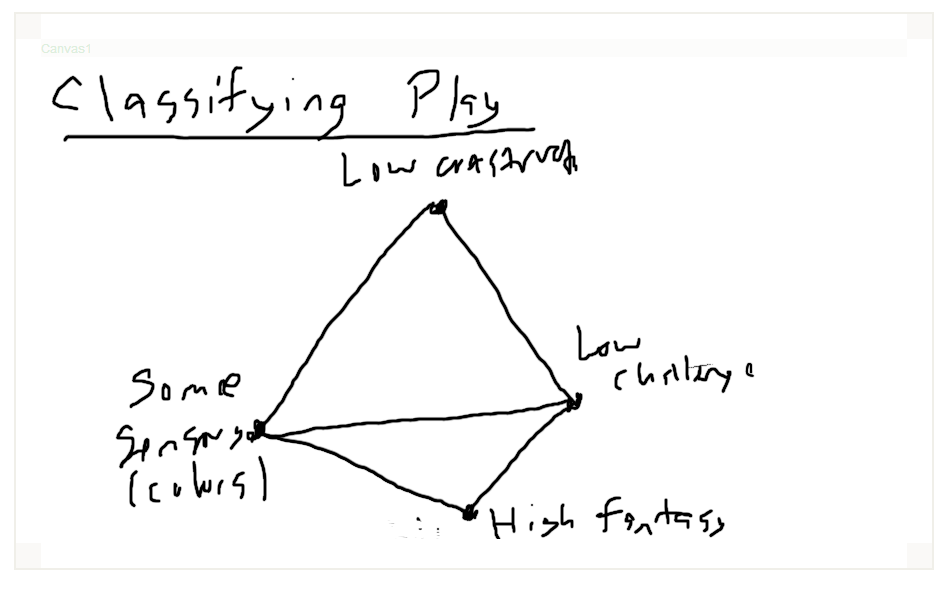 Canvas1
Classifying Play
Low
Low
challenge
Some
Sensory
(colors)
High fantasy